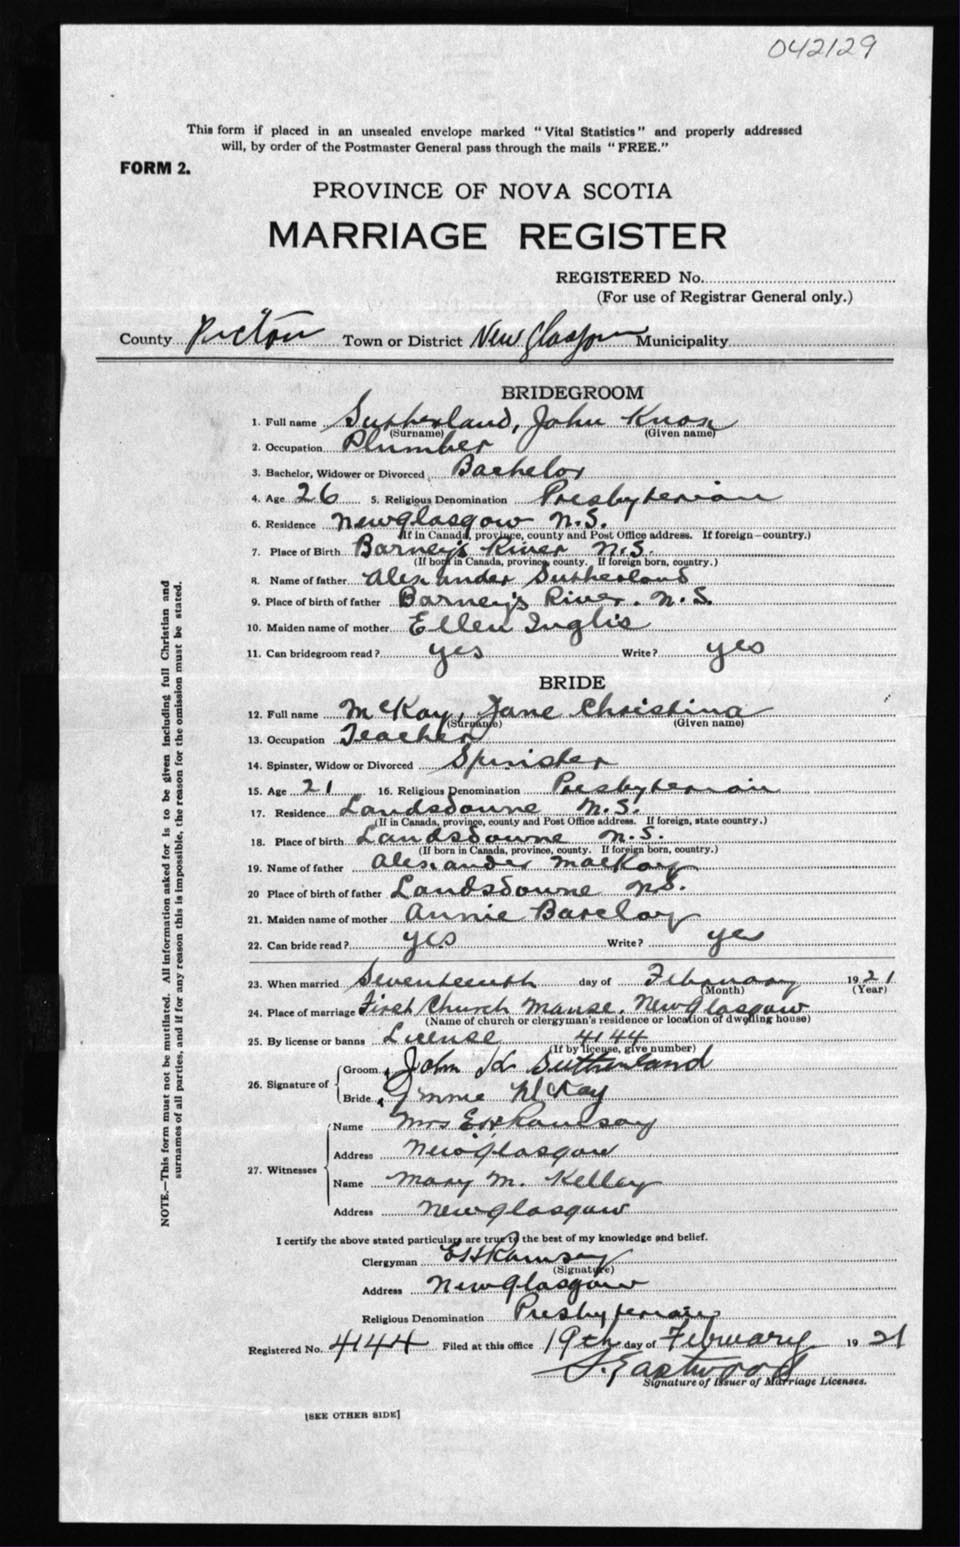 042129
This form if placed in an unsealed envelope marked "Vital Statistics" and properly addressed
will, by order of the Postmaster General pass through the mails "FREE."
FORM 2.
PROVINCE OF NOVA SCOTIA
MARRIAGE REGISTER
REGISTERED No.
(For use of Registrar General only.)
County Pictou Town or District New Glasgow Municipality
BRIDEGROOM
1. Full name Sutherland, John Knox
(Surname) (Given name)
2. Occupation Plumber
3. Bachelor, Widower or Divorced Bachelor
4. Age 26 5. Religious Denomination Presbyterian
6. Residence New Glasgow N.S.
(If in Canada, province, county and Post Office address. If foreign—country.)
7. Place of Birth Barney's River N.S.
(If born in Canada, province, county. If foreign born, country.)
8. Name of father Alexander Sutherland
9. Place of birth of father Barney's River. N.S.
10. Maiden name of mother Ellen Inglis
11. Can bridegroom read? yes Write? yes
BRIDE
12. Full name McKay, Jane Christina
(Surname) (Given name)
13. Occupation Teacher
14. Spinster, Widow or Divorced Spinster
15. Age 21 16. Religious Denomination Presbyterian
17. Residence Landsdowne N.S.
(If in Canada, province, county and Post Office address. If foreign, state country.)
18. Place of birth Landsdowne N.S.
(If born in Canada, province, county. If foreign born, country.)
19. Name of father Alexander MacKay
20 Place of birth of father Landsdowne N.S.
21. Maiden name of mother Annie Barclay
22. Can bride read? yes Write? yes
23. When married Seventeenth day of February 1921
(Month) (Year)
24. Place of marriage First Church Manse, New Glasgow
(Name of church or clergyman's residence or location of dwelling house)
25. By license or banns License 4144
(If by license, give number)
26. Signature of
Groom John K Sutherland
Bride McKay
27. Witnesses
Name Mrs E H Ramsay
Address New Glasgow
Name Mary M. Kelley
Address New Glasgow
I certify the above stated particulars are true to the best of my knowledge and belief.
Clergyman E H Ramsay
(Signature)
Address New Glasgow
Religious Denomination Presbyterian
Registered No. 4144 Filed at this office 19th day of February 1921
Eastwood
Signature of Issuer of Marriage Licenses.
[SEE OTHER SIDE]
NOTE.—This form must not be mutilated. All information asked for is to be given including full Christian and
surnames of all parties, and if for any reason this is impossible, the reason for the omission must be stated.